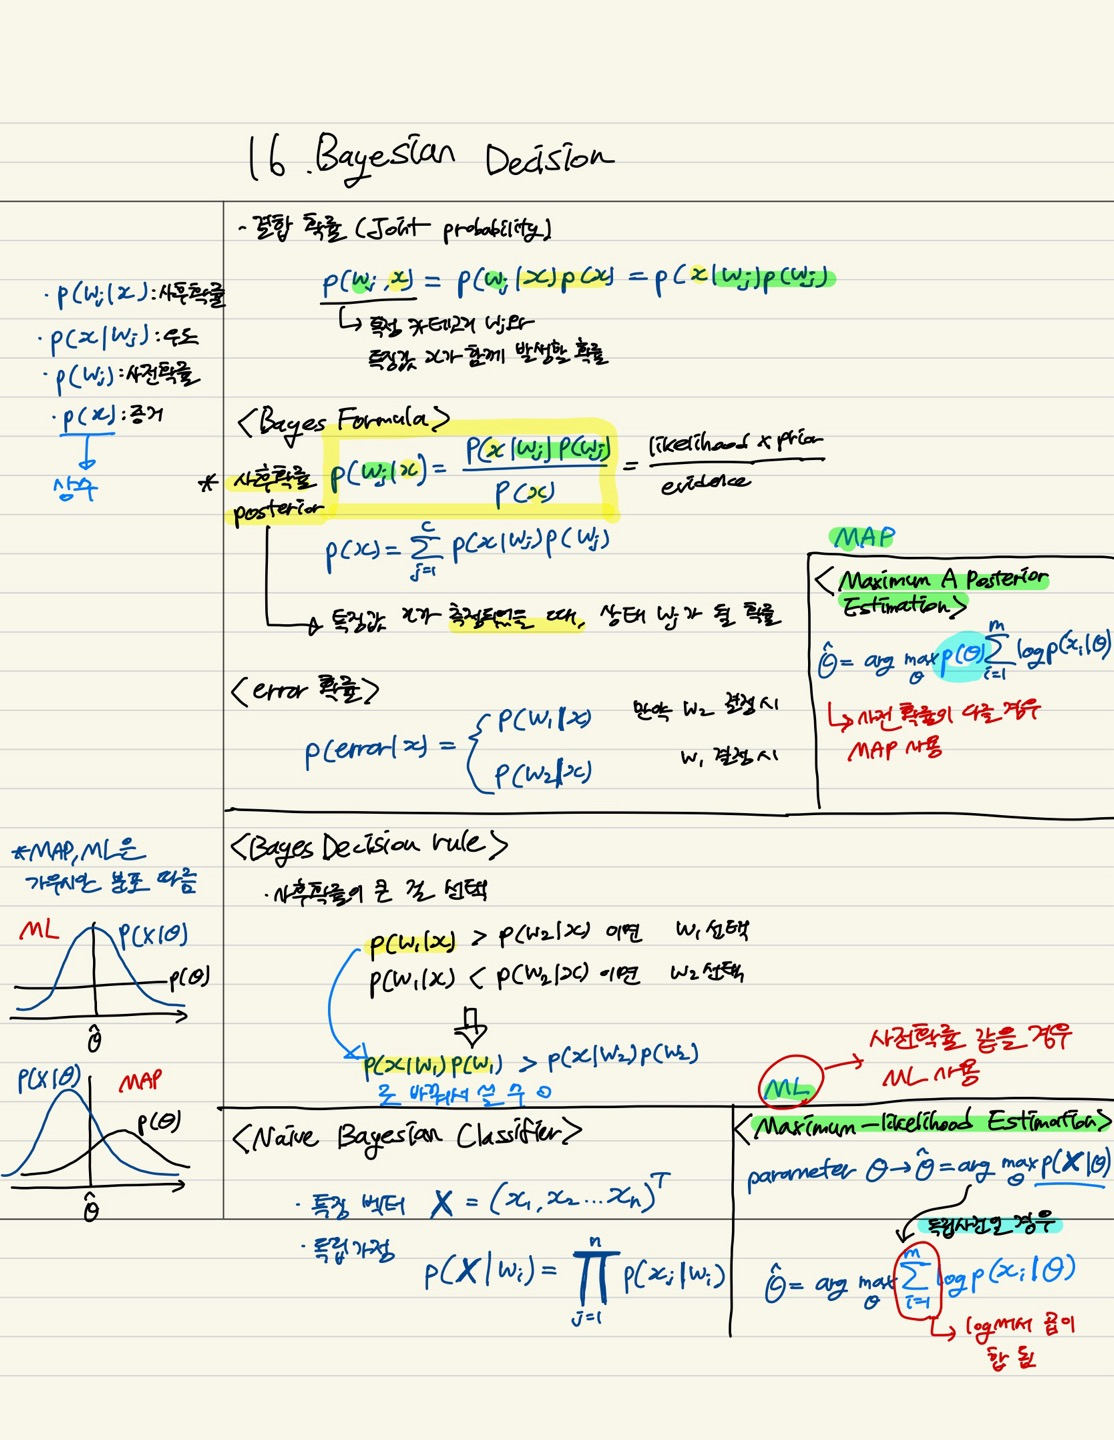 16. Bayesian Decision
- 결합 확률 (Joint probability)
p(wj, x) = p(wj|x)p(x) = p(x|wj)p(wj)
↳ 특정 카테고리 wj와
특징값 x가 함께 발생할 확률
· p(wj|x) : 사후확률
· p(x|wj) : 우도
· p(wj) : 사전확률
· p(x) : 증거
상수
<Bayes Formula>
* 사후확률
posterior
p(wj|x) = P(x|wj)P(wj) / P(x) = likelihood x prior / evidence
p(x) = Σ_{j=1}^{c} p(x|wj)p(wj)
특징값 x가 측정되었을 때, 상태 wj가 될 확률
MAP
<Maximum A Posterior
Estimation>
θ̂ = arg max_θ p(θ) Σ_{i=1}^{m} log p(xi|θ)
↳ 사전 확률이 다를 경우
MAP 사용
<error 확률>
p(error|x) = {
P(w1|x) 만약 w2 결정시
P(w2|x) w1 결정시
*MAP, ML은
가우시안 분포 따름
ML
P(X|θ)
p(θ)
θ̂
P(X|θ)
MAP
p(θ)
θ̂
<Bayes Decision rule>
· 사후확률이 큰 걸 선택
p(w1|x) > p(w2|x) 이면 w1 선택
p(w1|x) < p(w2|x) 이면 w2 선택
p(x|w1)p(w1) > p(x|w2)p(w2)
로 바꿔서 쓸 수 o
ML → 사전확률 같을 경우
ML 사용
<Naive Bayesian Classifier>
· 특징 벡터 X = (x1, x2 ... xn)^T
· 독립가정
p(X|wi) = ∏_{j=1}^{n} p(xj|wi)
<Maximum-likelihood Estimation>
parameter θ → θ̂ = arg max_θ p(X|θ)
독립사건일 경우
θ̂ = arg max_θ Σ_{i=1}^{m} log p(xi|θ)
↳ log써서 곱이
합 됨